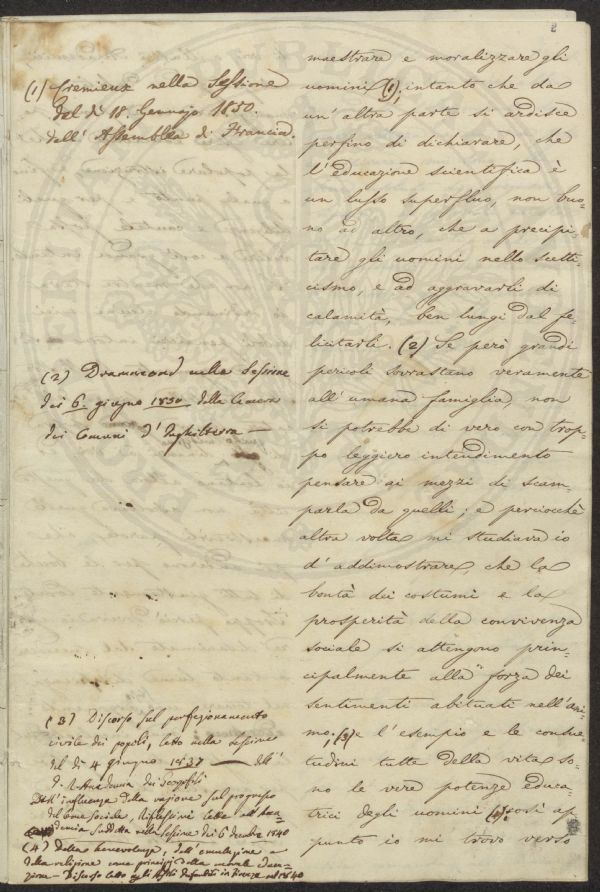 maestrare e moralizzare gli
uomini (1); intanto che da
un' altra parte si ardisce
perfino di dichiarare, che
l' educazione scientifica è
un lusso superfluo, non buo-
no ad altro, che a precipi-
tare gli uomini nello scetti-
cismo, e ad aggravarli di
calamità, ben lungi dal fe-
licitarli. (2) Se però grandi
pericoli sovrastano veramente
all' umana famiglia, non
si potrebbe di vero con trop-
po leggiero intendimento
pensare ai mezzi di scam-
parla da quelli; e perciocchè
altra volta mi studiava io
d' addimostrare, che la
bontà dei costumi e la
prosperità della convivenza
sociale si attengono prin-
cipalmente alla forza dei
sentimenti abituati nell' ani-
mo; (3) e l' esempio e le consue-
tudini tutte della vita so-
no le vere potenze educa-
trici degli uomini (4); così ap-
punto io mi trovo verso
(1) Cremieux nella Sessione
del dì 18. Gennajo 1850.
dell' Assemblea di Francia.
(2) Drummond nella Sessione
dei 6 giugno 1850 della Camera
dei Comuni d' Inghilterra —
(3) Discorso sul perfezionamento
civile dei popoli, letto nella sessione
del dì 4 giugno 1837 — dell'
I. R. Accademia dei Georgofili
Dell' influenza della ragione sul progresso
del bene sociale, Riflessioni lette all' Acca-
demia Suddetta nella sessione dei 6 decembre 1840
(4) Della benevolenza, dell' emulazione e
della religione come principj della morale educa-
zione — Discorso letto agli Asili Infantili in Firenze nel 1840